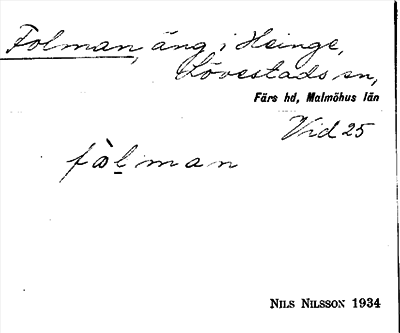 Folman, äng i Heinge,
Lövestads sn,
Färs hd, Malmöhus län
Vid 25
fòl̠man
NILS NILSSON 1934